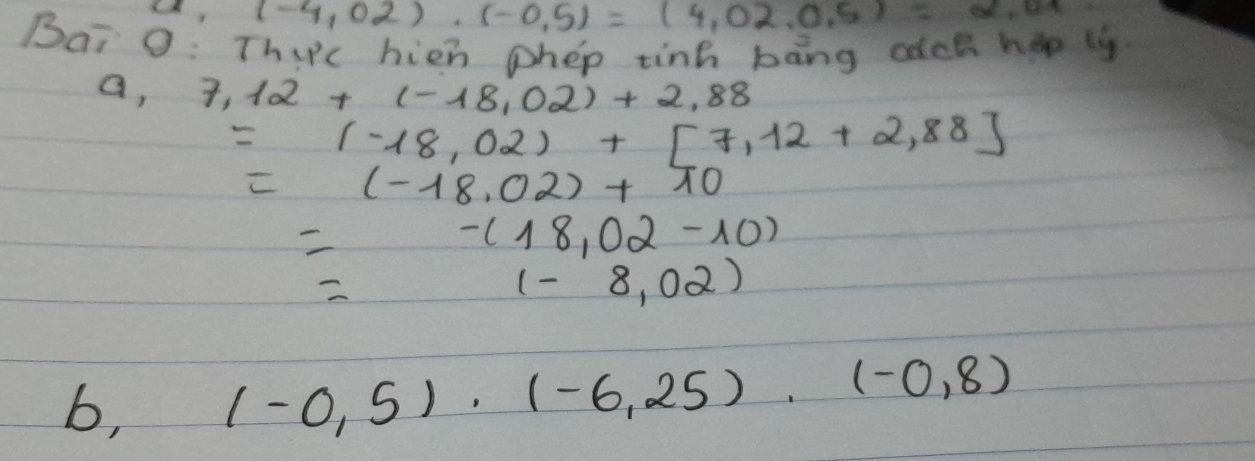 (-4,02) . (-0,5) = (4,02.0,5) = 2.01
Bài 9: Thực hiện phép tính bằng cách hợp lý
a, 7,12 + (-18,02) + 2,88
= (-18,02) + [7,12 + 2,88]
= (-18,02) + 10
= -(18,02 -10)
= (- 8,02)
b, (-0,5) . (-6,25) . (-0,8)